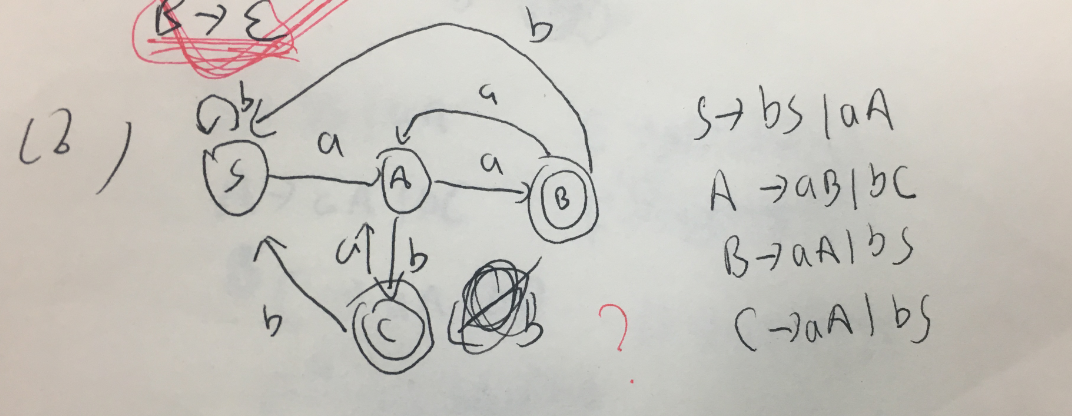 B → ε
b
b
a
(3)
S
a
A
a
B
a
b
C
b
b
?
S → bS | aA
A → aB | bC
B → aA | bS
C → aA | bS